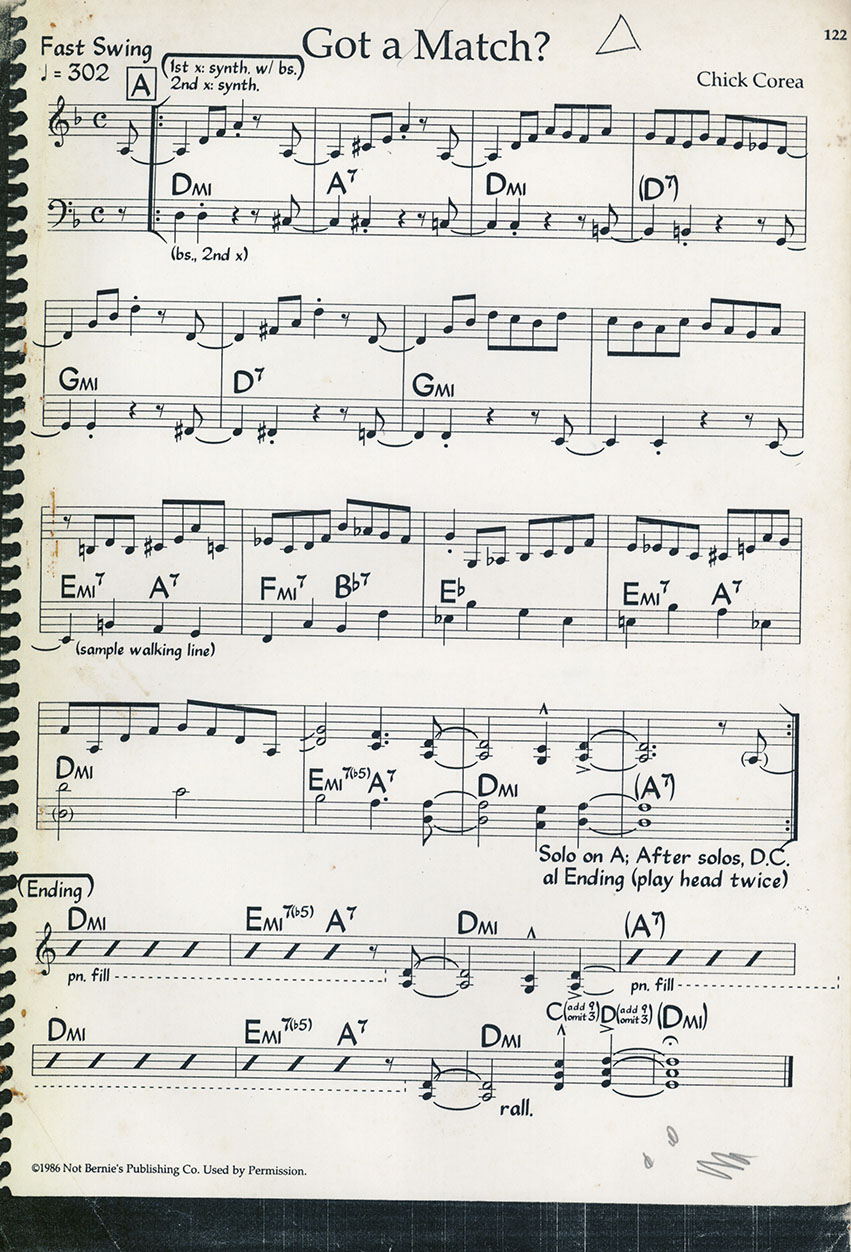 Got a Match?
122
Fast Swing
♩ = 302
A
(1st x: synth. w/ bs.)
2nd x: synth.
Chick Corea
DMI A7 DMI (D7)
(bs., 2nd x)
GMI D7 GMI
EMI7 A7 FMI7 B♭7 E♭ EMI7 A7
(sample walking line)
DMI EMI7(♭5) A7 DMI (A7)
Solo on A; After solos, D.C.
al Ending (play head twice)
(Ending)
DMI EMI7(♭5) A7 DMI (A7)
pn. fill pn. fill
C(add 9 omit 3) D(add 9 omit 3) (DMI)
DMI EMI7(♭5) A7 DMI
rall.
©1986 Not Bernie's Publishing Co. Used by Permission.